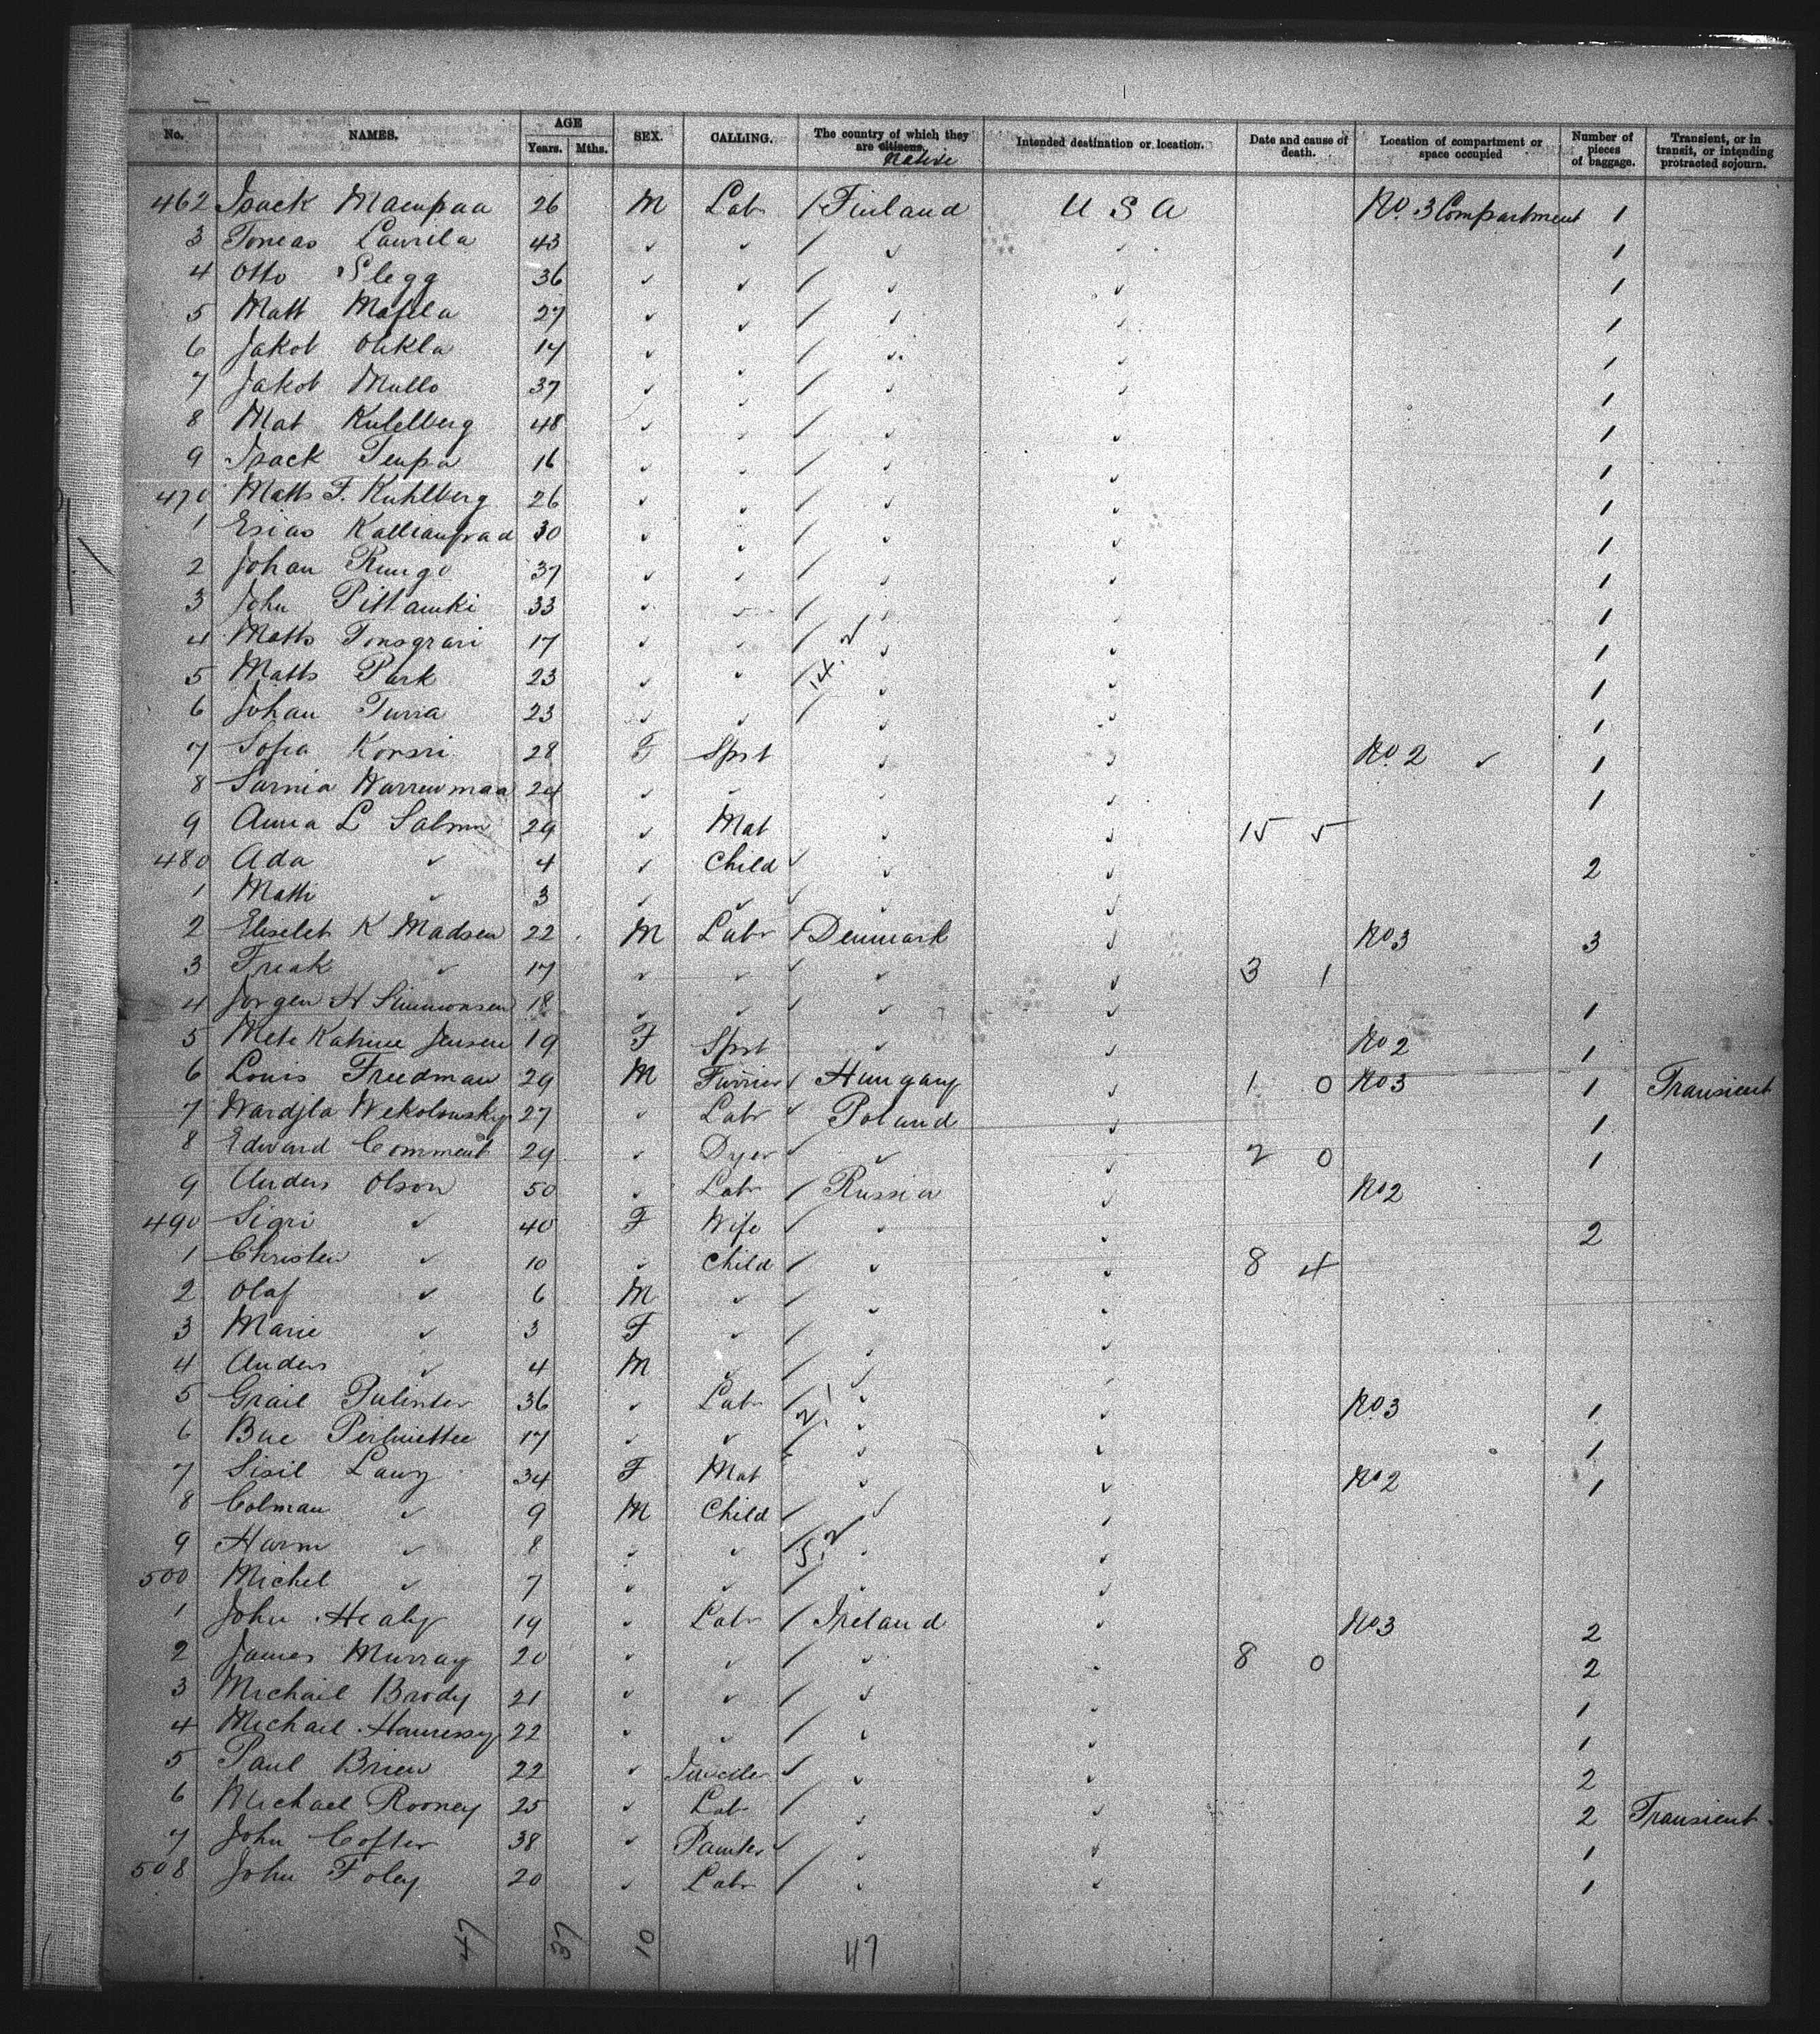 No. NAMES. AGE Years. Mths. SEX. CALLING. The country of which they are citizens. Native Intended destination or location. Date and cause of death. Location of compartment or space occupied Number of pieces of baggage. Transient, or in transit, or intending protracted sojourn.
462 Isack Maenpaa 26 M Labr / Finland U S A No. 3 Compartment 1
3 Tomas Laurila 43 ✓ ✓ / ✓ ✓ 1
4 Otto Slegg 36 ✓ ✓ / ✓ ✓ 1
5 Matt 27 ✓ ✓ / ✓ ✓ 1
6 Jakob 14 ✓ ✓ / ✓ ✓ 1
7 Jakob Mullo 37 ✓ ✓ / ✓ ✓ 1
8 Mat 48 ✓ ✓ / ✓ ✓ 1
9 Isack 16 ✓ ✓ / ✓ ✓ 1
470 Matts F. Kuhlberg 26 ✓ ✓ / ✓ ✓ 1
1 Esias 30 ✓ ✓ / ✓ ✓ 1
2 Johan 37 ✓ ✓ / ✓ ✓ 1
3 John 33 ✓ ✓ / ✓ ✓ 1
4 Matts 17 ✓ ✓ / ✓ ✓ 1
5 Matts Park 23 ✓ ✓ / 14. 2 ✓ ✓ 1
6 Johan 23 ✓ ✓ / ✓ ✓ 1
7 Sofia 28 F Spst ✓ ✓ No 2 ✓ 1
8 24 ✓ ✓ ✓ ✓ 1
9 Anna L 29 ✓ Mat ✓ ✓ 15 5
480 Ada ✓ 4 ✓ Child ✓ ✓ ✓ 2
1 Matti ✓ 3 ✓ ✓ ✓ ✓ ✓
2 K Madsen 22 M Labr / Denmark ✓ No 3 3
3 ✓ 17 ✓ ✓ ✓ ✓ ✓ 3 1
4 Jorgen H Simmonsen 18 ✓ ✓ / ✓ ✓ 1
5 Mete Katrine Jensen 19 F Spst ✓ ✓ No 2 1
6 Louis Freedman 29 M Furrier / Hungary ✓ 1 0 No 3 1 Transient
7 27 ✓ Labr ✓ Poland ✓ 1
8 Edward Comment 29 ✓ Dyer ✓ ✓ ✓ 2 0 1
9 Anders Olson 50 ✓ Labr / Russia ✓ No 2
490 Sigri ✓ 40 F Wife ✓ ✓ ✓ 2
1 Christen ✓ 10 ✓ Child / ✓ ✓ 8 4
2 Olaf ✓ 6 M ✓ / ✓ ✓
3 Marie ✓ 3 F ✓ / ✓ ✓
4 Anders ✓ 4 M ✓ / ✓ ✓
5 36 ✓ Labr / ✓ ✓ No. 3 1
6 17 ✓ ✓ ✓ ✓ 1
7 34 F Mat ✓ ✓ No 2 1
8 Colman ✓ 9 M Child / ✓ ✓
9 ✓ 8 ✓ ✓ / 5. 2 ✓ ✓
500 Michel ✓ 7 ✓ ✓ / ✓ ✓
1 John Healy 19 ✓ Labr / Ireland ✓ No 3 2
2 James Murray 20 ✓ ✓ / ✓ ✓ 8 0 2
3 Michail Brody 21 ✓ ✓ / ✓ ✓ 1
4 Michail Hennessy 22 ✓ ✓ / ✓ ✓ 1
5 Paul Brien 22 ✓ ✓ ✓ ✓ 2
6 Michael Rooney 25 ✓ Labr / ✓ ✓ 2 Transient
7 John 38 ✓ Painter ✓ ✓ ✓ 1
508 John Foley 20 ✓ Labr / ✓ ✓ 1
47 37 10 47